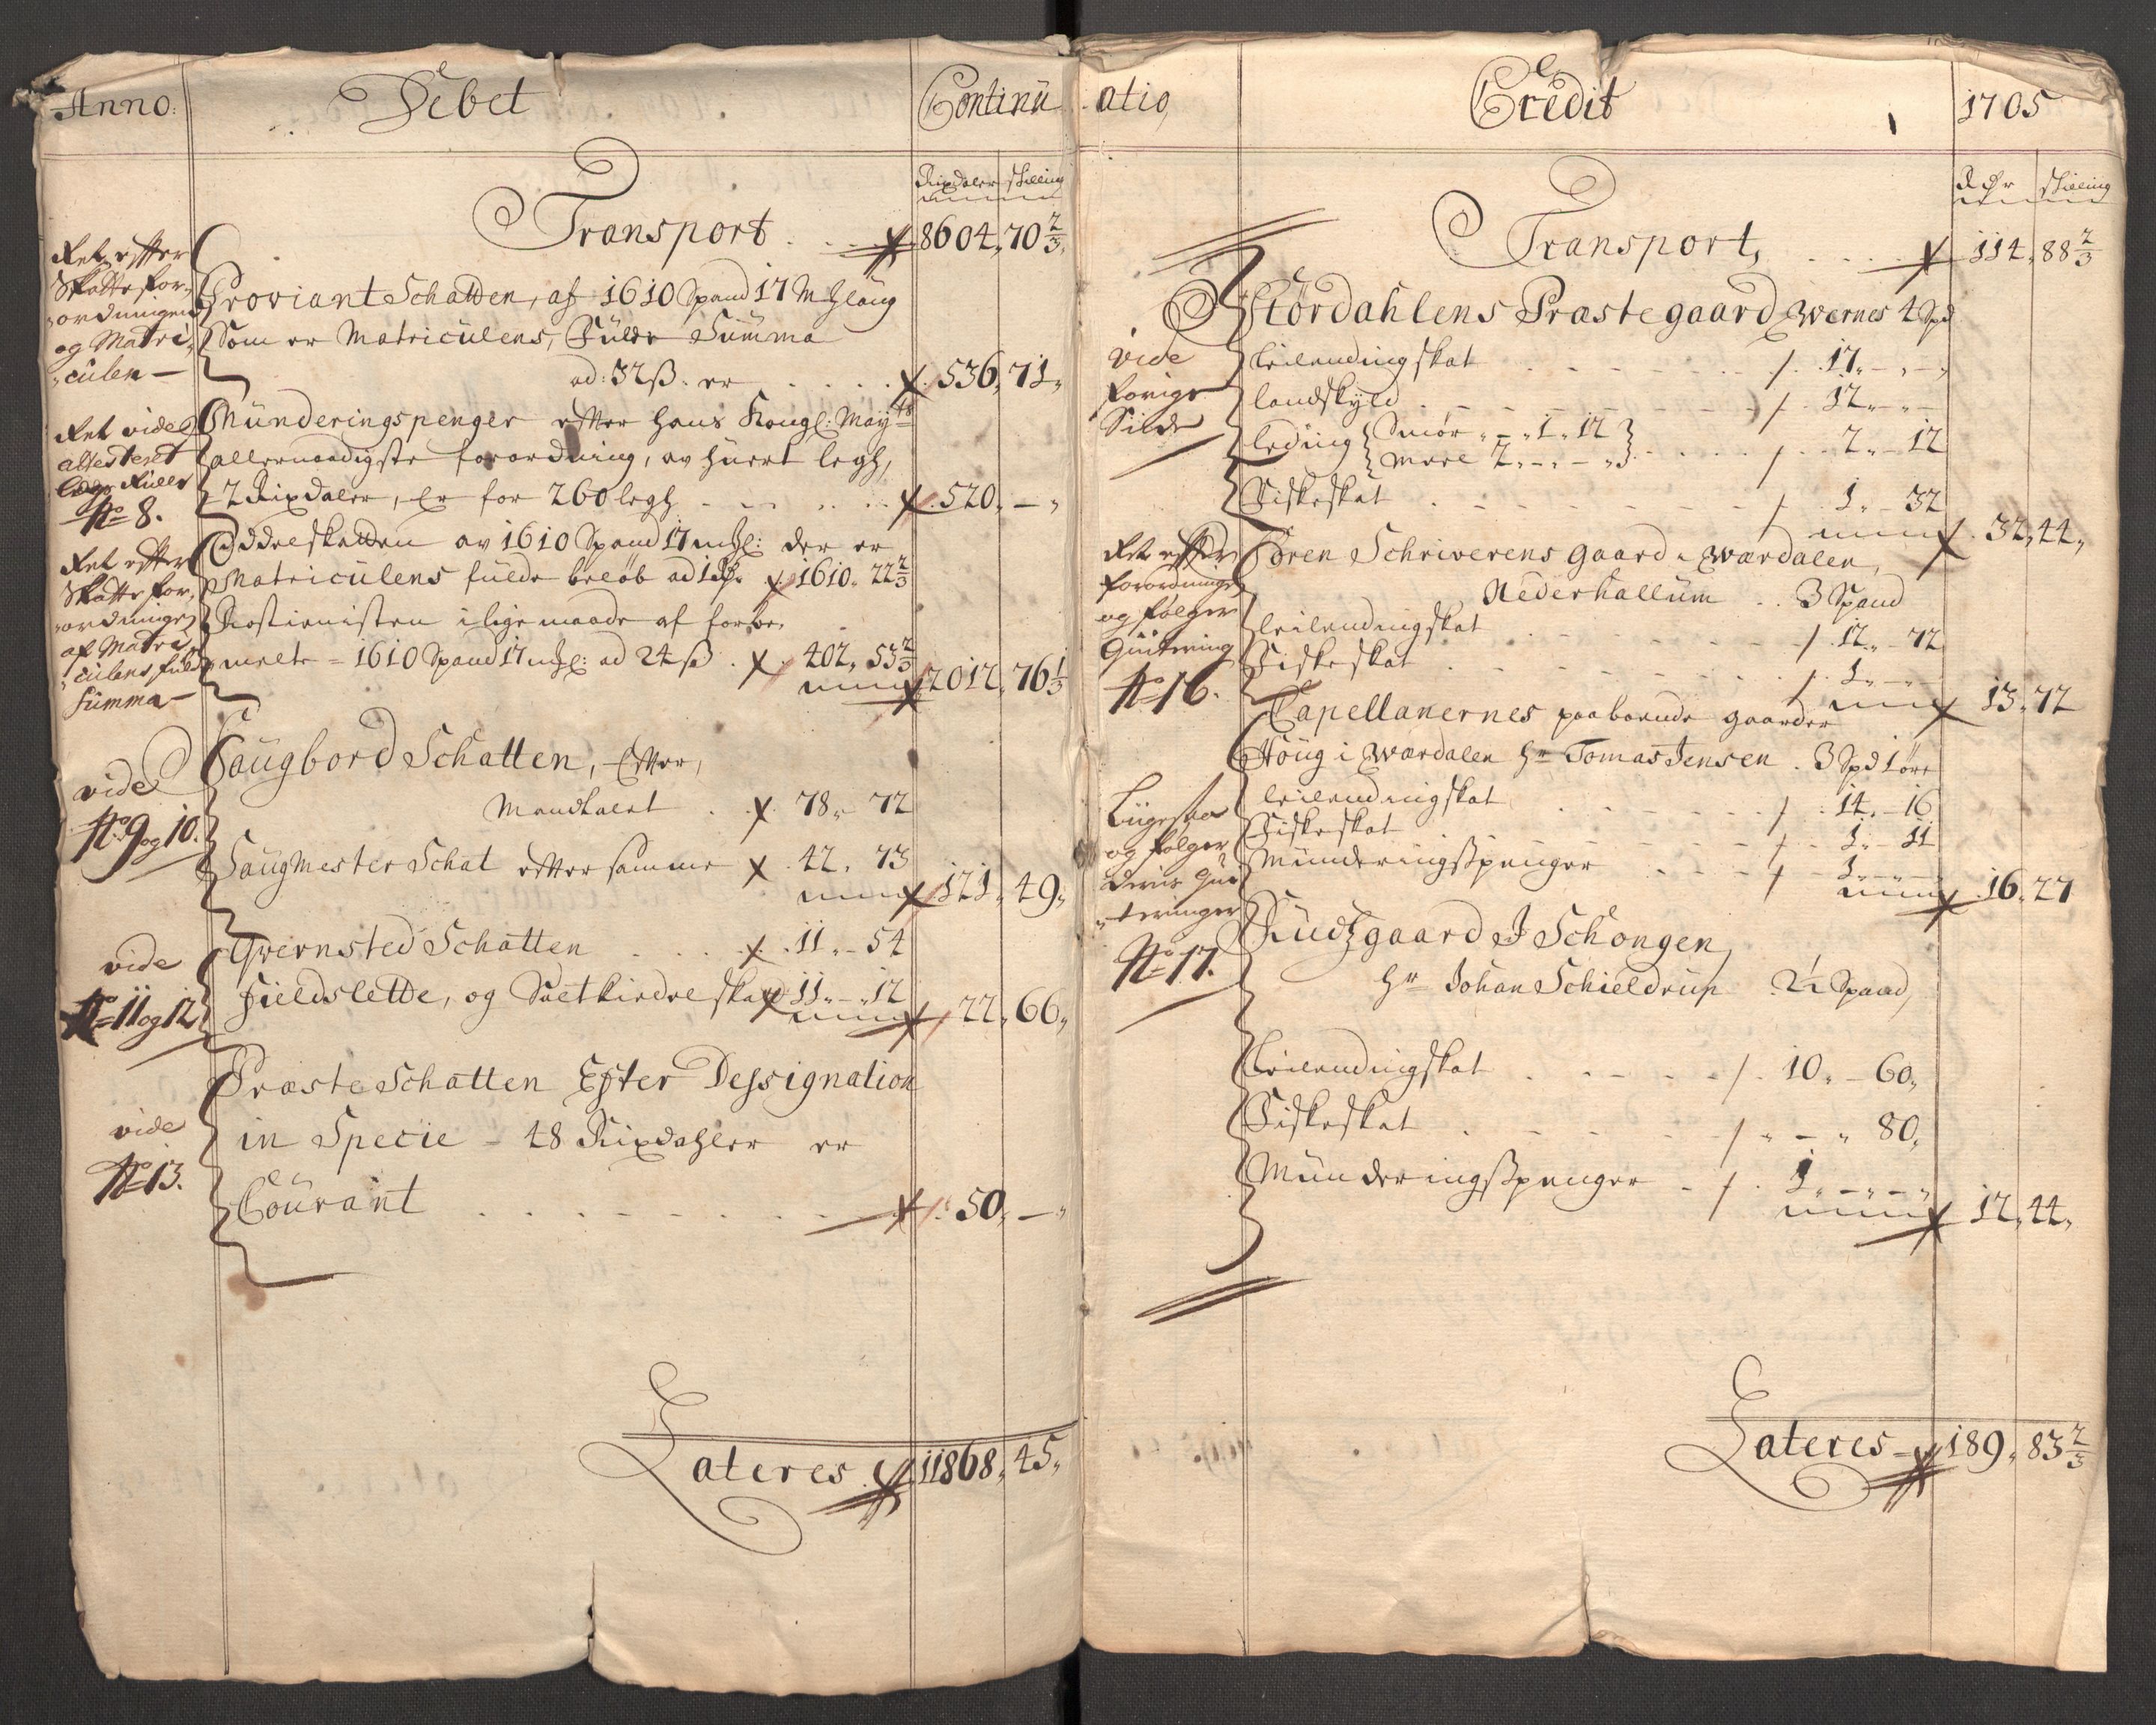 Anno:
Debet
Continu
Rixdaler skilling
Transport 8604 70 2/3
Ret efter
Skatte for-
ordningen
og Matri-
culen
Proviant Schatten, af 1610 Spand 17 M hlaug
Som er Matriculens, Fulde Summa
ad: 32 ß: er 536, 71,
Ret vide
attesteret
Legs Rulle
No 8.
Münderingspenger efter Hans Kongl: Maytts
allernaadigste forordning, av huert legh,
2 Rixdaler, Er for 260 legh 520, —
Ret efter
Skatte for-
ordningen
af Matri-
culens fulde
Summa
Oddelskatten av 1610 Spand 17 mhl: der er
Matriculens fulde beløb ad 1 dr 1610, 22 2/3
Rostienisten i lige maade af forbe-
melte 1610 Spand 17 mhl: ad 24 ß 402, 53 2/3
2012, 76 1/3
vide
No 9 og 10.
Saugbord Schatten, Efter,
Mandtalet 78, 72
Saugmester Schat efter samme 42, 73
121, 49,
vide
No 11 og 12
Qwernsted Schatten 11, 54
Fieldslette, og Sætkirdel skat 11, 12
22, 66,
vide
No 13.
Præste Schatten Efter Dessignation
in Specie 48 Rixdahler er
Courant 50, —
Lateres 11868, 45,
atio,
Credit
1705
Rdr skilling
Transport, 114, 88 2/3
Størdahlens Præstegaard Wernes 4 Spd
vide
forige
Side
Leilendingskat 17, —
landskyld 12, —
leding Smør 1, 12
meel 2, — 2, 12
Fiskeskat 1, 32
32, 44,
Ret efter
forordningen
og følger
Quitering
No 16.
Soren Schriverens gaard i Wærdalen,
Nederhallum 3 Spand
Leilendingskat 12, 72
Fiskeskat 1, —
13, 72
Capellanernes paaboende gaarder
Houg i Wærdalen Hr Tomas Jensen 3 Spd 1 øre
Liigesaa
og følger
deris Qui-
teringer
No 17.
Leilendingskat 14, 16
Fiskeskat 1, 11
Münderingspenger 1, —
16, 27
Ruds gaard I Schongen,
Hr Johan Schieldrup 2 1/2 Spand,
Leilendingskat 10, 60,
Fiskeskat — 80,
Münderingspenger 1, —
12, 44,
Lateres 189, 83 2/3